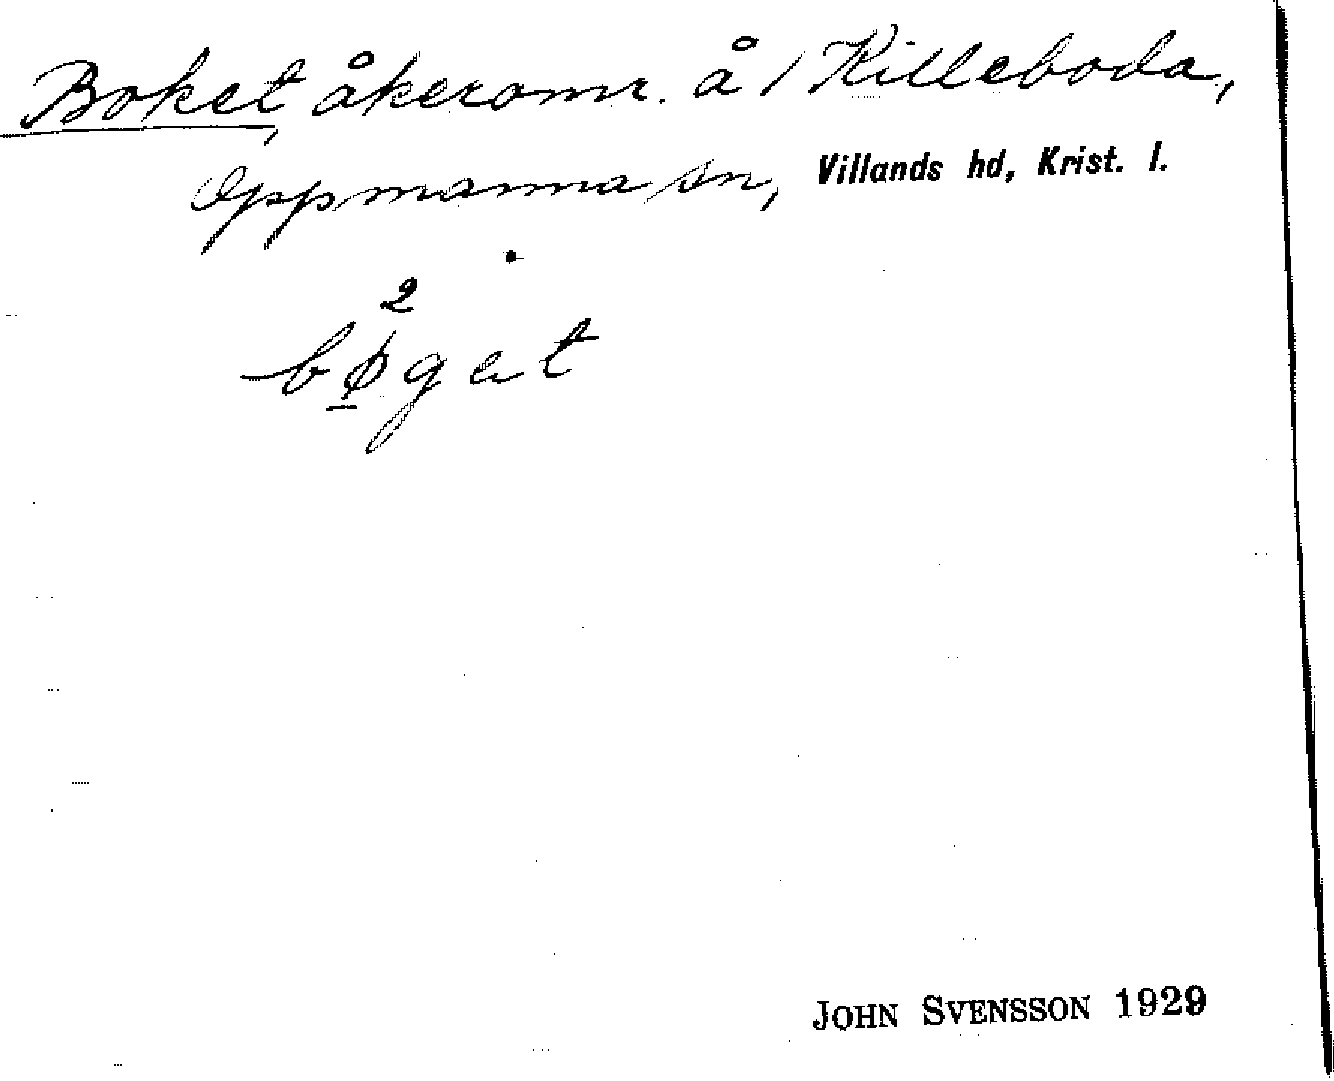 Boket, åkeromr. å 1 Killeboda,
Oppmanna sn, Villands hd, Krist. l.
2
bøgat
JOHN SVENSSON 1929